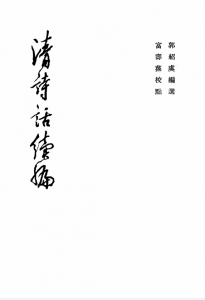 郭紹虞編選
富壽蓀校點
清詩話續編